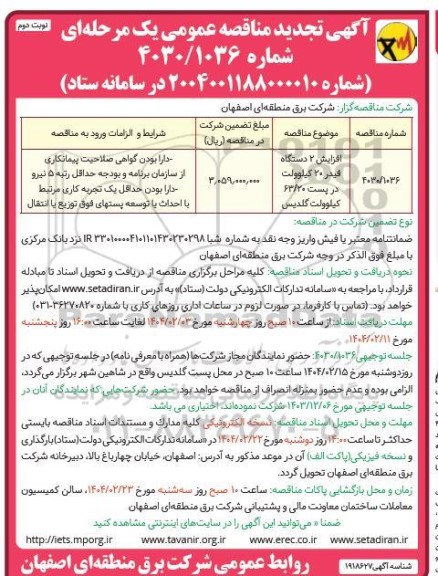 نوبت دوم
آگهی تجدید مناقصه عمومی یک مرحله‌ای
شماره ۴۰۳۰/۱۰۳۶
(شماره ۲۰۰۴۰۰۱۱۸۸۰۰۰۰۱۰ در سامانه ستاد)
شرکت مناقصه‌گزار: شرکت برق منطقه‌ای اصفهان
شماره مناقصه
موضوع مناقصه
مبلغ تضمین شرکت در مناقصه (ریال)
شرایط و الزامات ورود به مناقصه
۴۰۳۰/۱۰۳۶
افزایش ۲ دستگاه
فیدر ۲۰ کیلوولت
در پست ۶۳/۲۰
کیلوولت گلدیس
۳,۰۵۹,۰۰۰,۰۰۰
-دارا بودن گواهی صلاحیت پیمانکاری
از سازمان برنامه و بودجه حداقل رتبه ۵ نیرو
-دارا بودن حداقل یک تجربه کاری مرتبط
با احداث یا توسعه پستهای فوق توزیع یا انتقال
نوع تضمین شرکت در مناقصه:
ضمانتنامه معتبر یا فیش واریز وجه نقد به شماره شبا IR ۳۳۰۱۰۰۰۰۴۱۰۱۱۰۱۴۳۰۲۳۰۲۹۸ نزد بانک مرکزی
با مبلغ فوق الذکر در وجه شرکت برق منطقه‌ای اصفهان
نحوه دریافت و تحویل اسناد مناقصه: کلیه مراحل برگزاری مناقصه از دریافت و تحویل اسناد تا مبادله
قرارداد، با مراجعه به «سامانه تدارکات الکترونیکی دولت (ستاد)» به آدرس www.setadiran.ir امکان‌پذیر
خواهد بود. (تماس با کارفرما، در صورت لزوم در ساعات اداری روزهای کاری با شماره ۳۶۲۷۰۸۲۰-۰۳۱)
مهلت دریافت اسناد: از ساعت ۱۰ صبح روز چهارشنبه مورخ ۱۴۰۴/۰۲/۰۳ لغایت ساعت ۱۶:۰۰ روز پنجشنبه
مورخ ۱۴۰۴/۰۲/۱۱
جلسه توجیهی ۴۰۳۰/۱۰۳۶: حضور نمایندگان مجاز شرکت‌ها (همراه با معرفی نامه) در جلسه توجیهی که در
روز دوشنبه مورخ ۱۴۰۴/۰۲/۱۵ ساعت ۱۰ صبح در محل پست گلدیس واقع در شاهین شهر برگزار می‌گردد،
الزامی بوده و عدم حضور بمنزله انصراف از مناقصه خواهد بود. حضور شرکت‌هایی که نمایندگان آنان در
جلسه توجیهی مورخ ۱۴۰۳/۱۲/۰۶ شرکت نموده‌اند، اختیاری می باشد.
مهلت و محل تحویل اسناد مناقصه: نسخه الکترونیکی کلیه مدارک و مستندات اسناد مناقصه بایستی
حداکثر تا ساعت ۱۴:۰۰ روز دوشنبه مورخ ۱۴۰۴/۰۲/۲۲ در «سامانه تدارکات الکترونیکی دولت (ستاد) بارگذاری
و نسخه فیزیکی (پاکت الف) آن در موعد مذکور به آدرس: اصفهان، خیابان چهارباغ بالا، دبیرخانه شرکت
برق منطقه‌ای اصفهان تحویل گردد.
زمان و محل بازگشایی پاکات مناقصه: ساعت ۱۰ صبح روز سه‌شنبه مورخ ۱۴۰۴/۰۲/۲۳، سالن کمیسیون
معاملات ساختمان معاونت مالی و پشتیبانی شرکت برق منطقه‌ای اصفهان
ضمنا « می‌توانید این آگهی را در سایت‌های اینترنتی مشاهده کنید
http://iets.mporg.ir www.tavanir.org.ir www.erec.co.ir www.setadiran.ir
شناسه آگهی ۱۹۱۸۶۲۷
روابط عمومی شرکت برق منطقه‌ای اصفهان